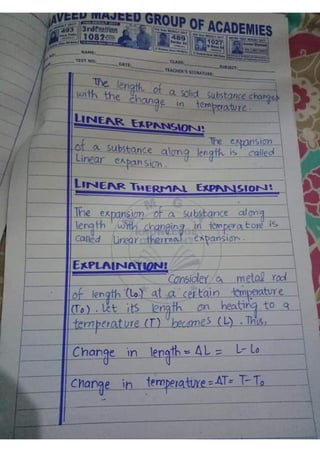 NAVEED MAJEED GROUP OF ACADEMIES
493
3rdPosition
1082
489
1027
NAME:
CLASS:
SUBJECT:
TEST NO:
DATE:
TEACHER'S SIGNATURE:
The length of a solid substance changes
with the change in temperature.
LINEAR EXPANSION:
The expansion
of a substance along length is called
Linear expansion.
LINEAR THERMAL EXPANSION:
The expansion of a substance along
length with changing in temperature is
called linear thermal expansion.
EXPLAINATION:
Consider a metal rod
of length (Lo) at a certain temperature
(To). Let its length on heating to a
temperature (T) becomes (L). Thus,
Change in length = ΔL = L-Lo
Change in temperature = ΔT = T-To